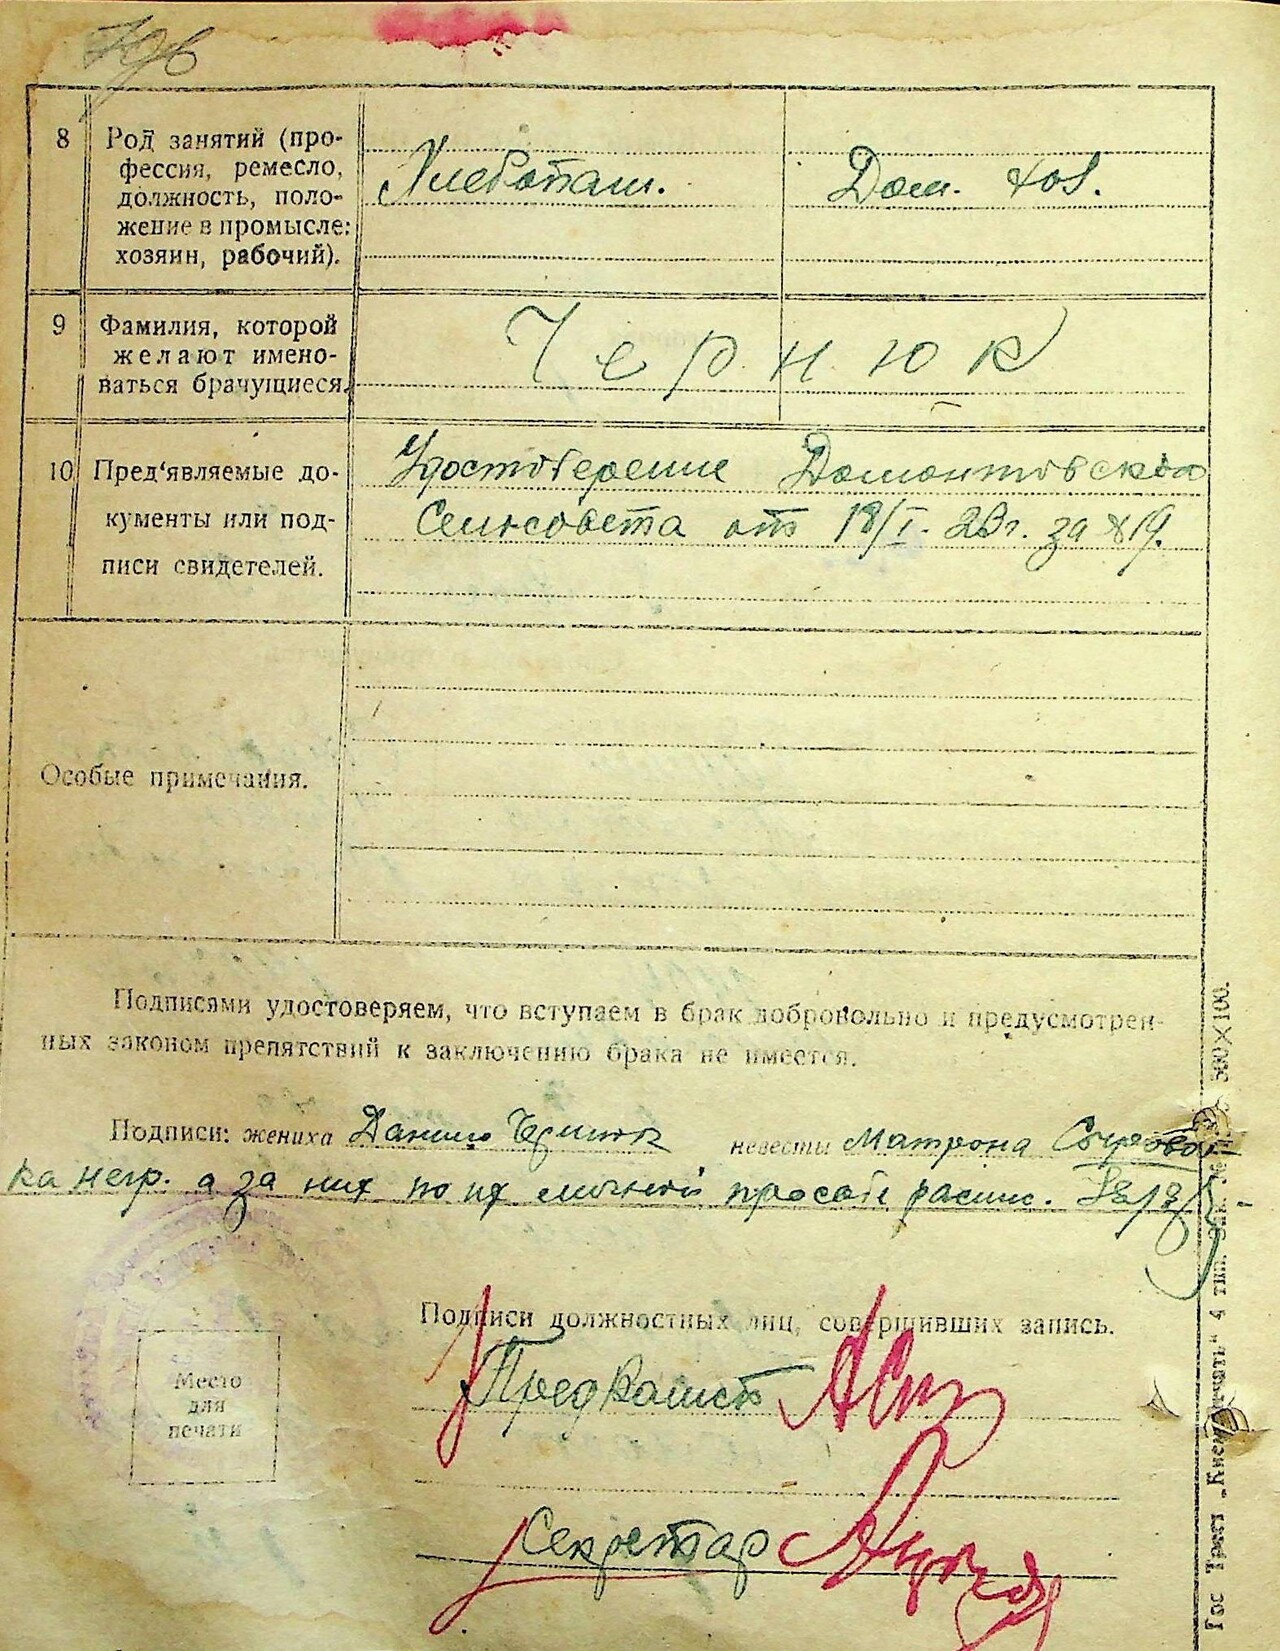 8
Род занятий (про-
фессия, ремесло,
должность, поло-
жение в промысле:
хозяин, рабочий).
Хлебопаш.
Дом. хоз.
9
Фамилия, которой
желают имено-
ваться брачущиеся.
Чернюк
10
Пред'являемые до-
кументы или под-
писи свидетелей.
Удостоверение Домонтовского
Сельсовета от 18/I- 23г. за №19.
Особые примечания.
Подписями удостоверяем, что вступаем в брак добровольно и предусмотрен-
ных законом препятствий к заключению брака не имеется.
Подписи: жениха Данило Чернюк невесты Матрона
негр. а за них по их личной просьбе распис.
Место
для
печати
Подписи должностных лиц, совершивших запись.
Пред
Секретар
Гос Трест „Киев-Печать" 4 тип. Зак. № 500×100.